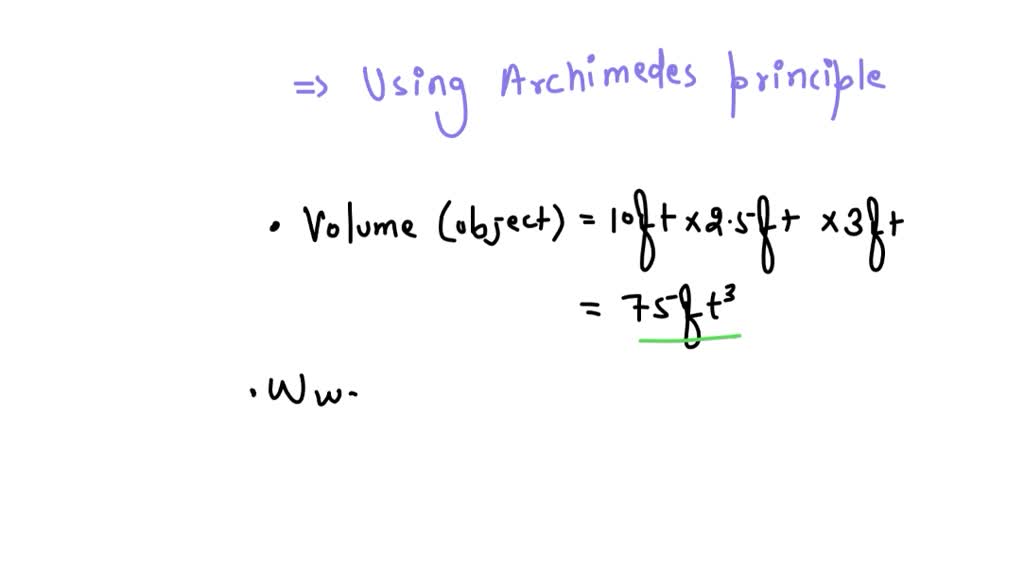 => Using Archimedes principle
• Volume (object) = 10ft × 2.5ft × 3ft
= 75ft³
• Ww.